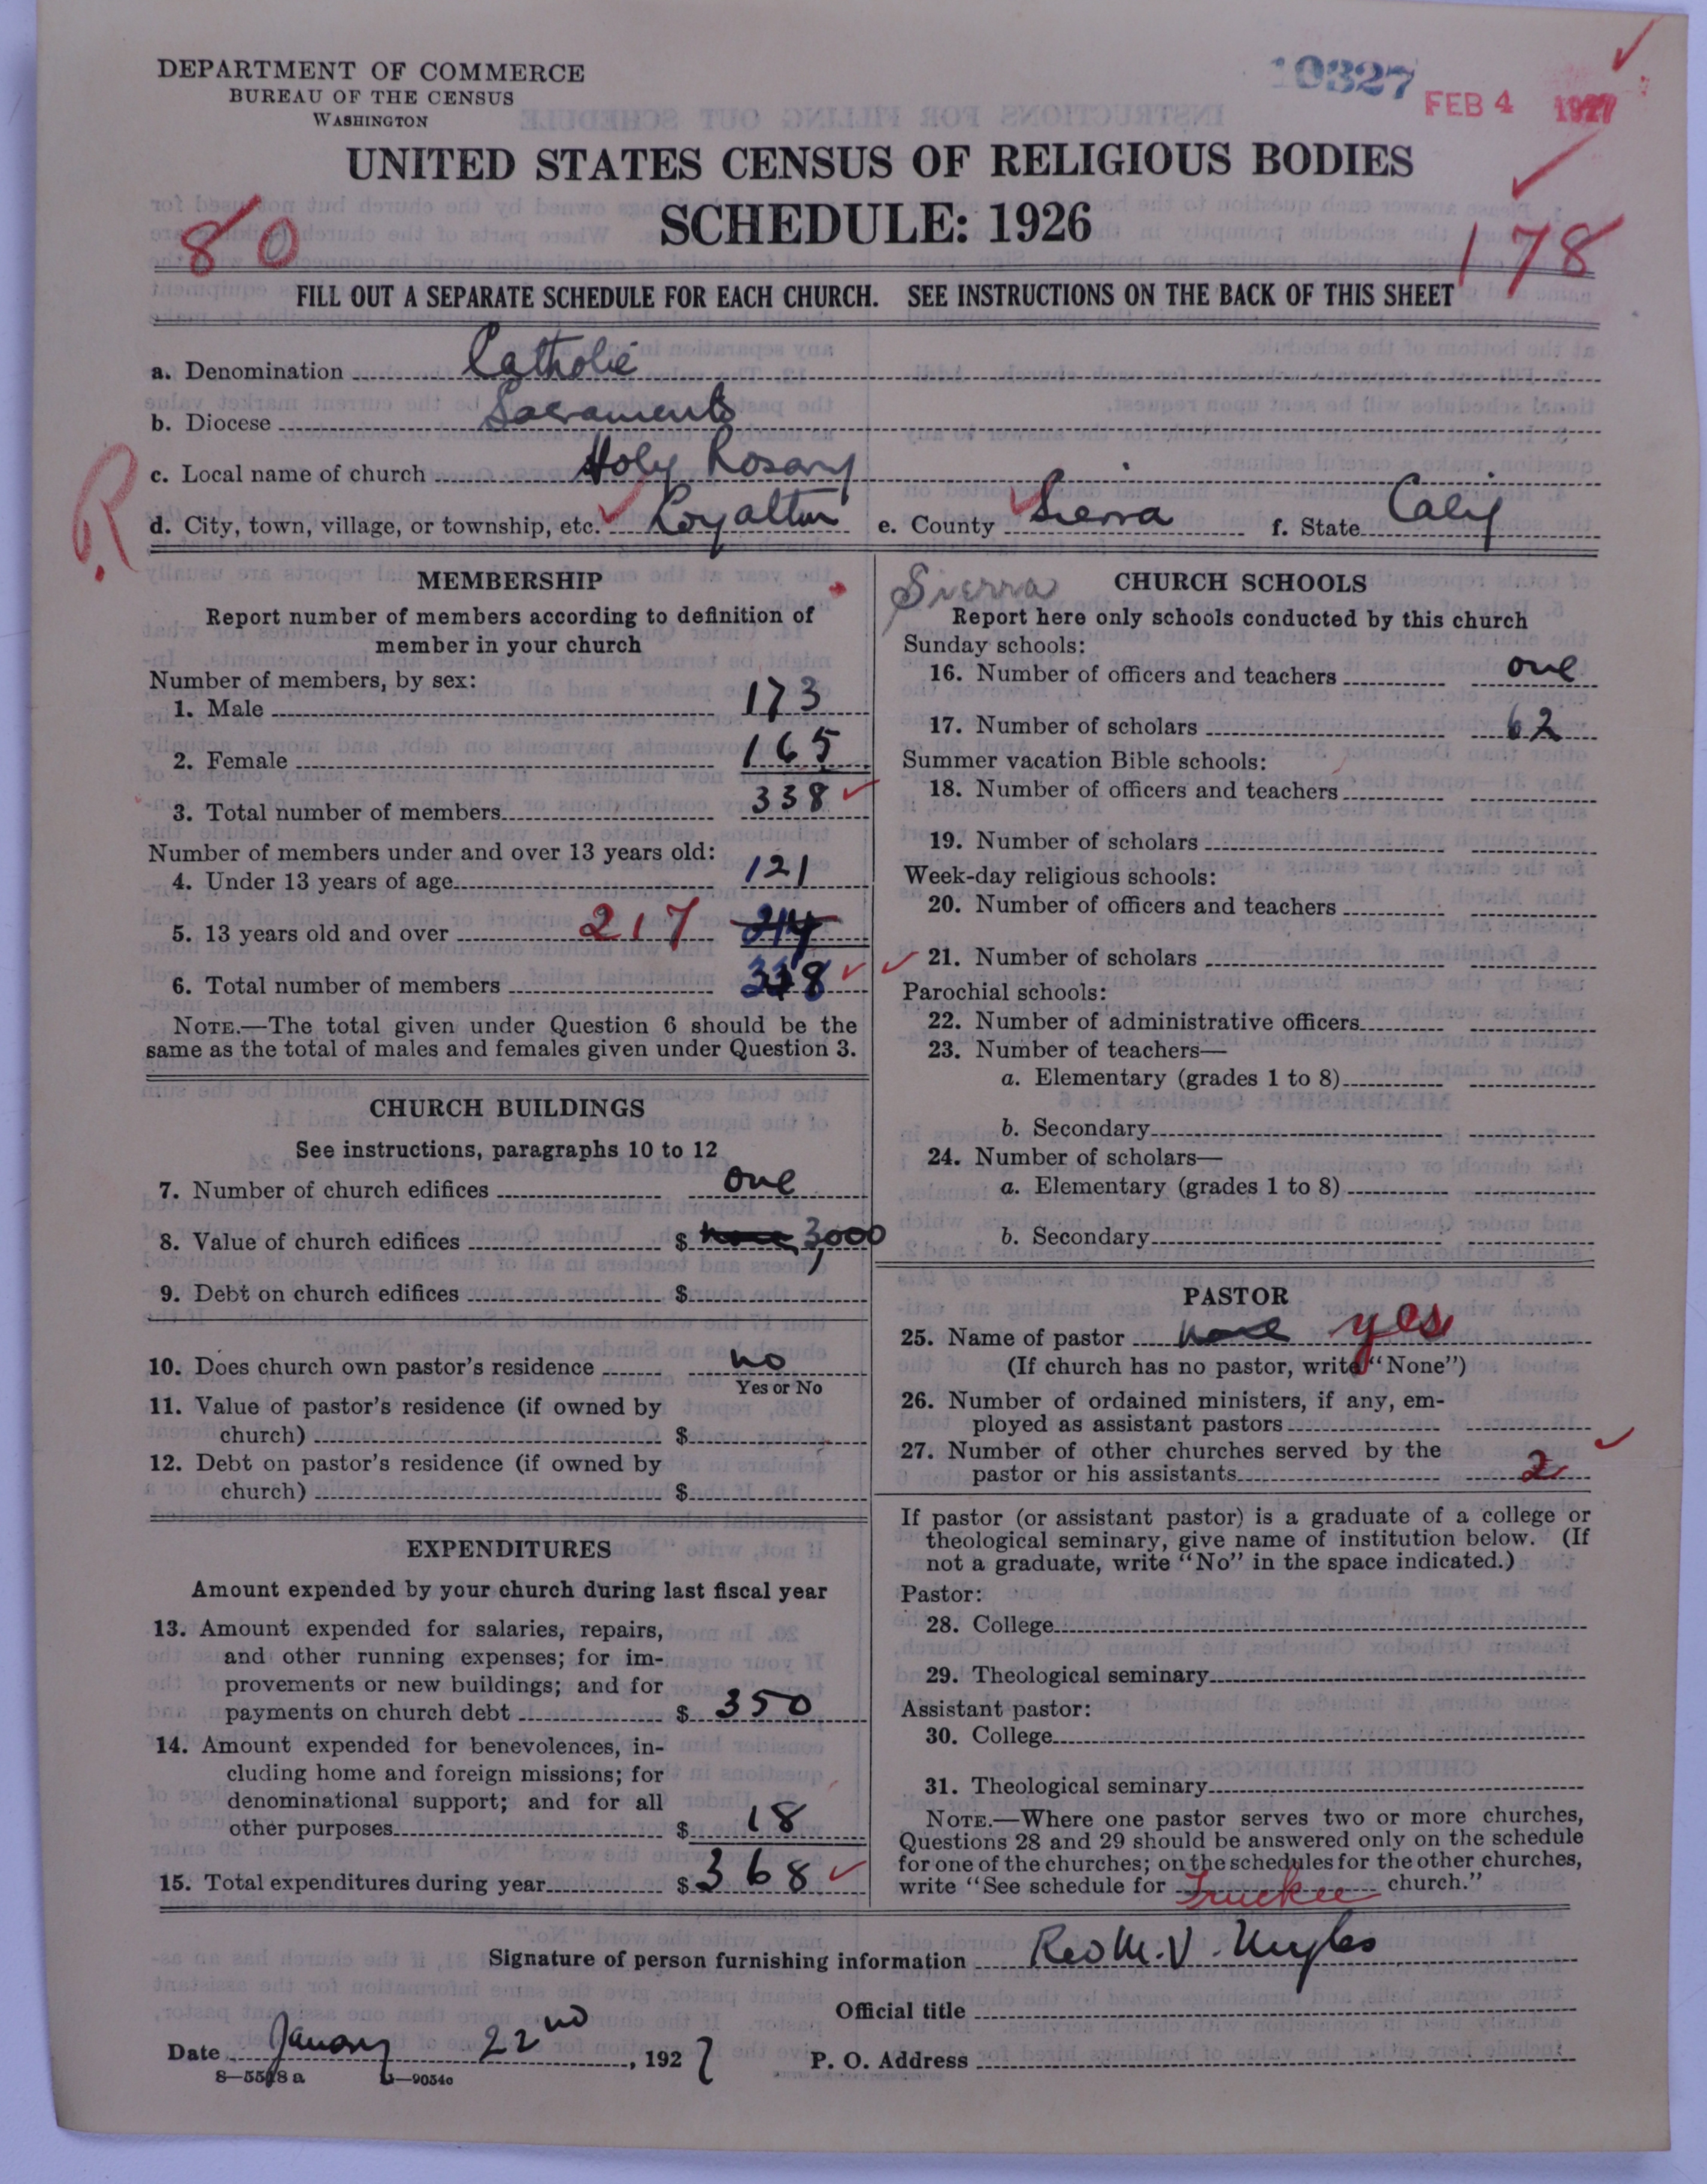 DEPARTMENT OF COMMERCE
BUREAU OF THE CENSUS
WASHINGTON
10327
FEB 4 1927
UNITED STATES CENSUS OF RELIGIOUS BODIES
SCHEDULE: 1926
80
178
FILL OUT A SEPARATE SCHEDULE FOR EACH CHURCH. SEE INSTRUCTIONS ON THE BACK OF THIS SHEET
a. Denomination Catholic
b. Diocese Sacramento
c. Local name of church Holy Rosary
R
d. City, town, village, or township, etc. Loyalton e. County Sierra f. State Calif
MEMBERSHIP
Report number of members according to definition of
member in your church
Number of members, by sex:
1. Male 173
2. Female 165
3. Total number of members 338
Number of members under and over 13 years old:
4. Under 13 years of age 121
5. 13 years old and over 217
6. Total number of members 338
NOTE.—The total given under Question 6 should be the
same as the total of males and females given under Question 3.
CHURCH BUILDINGS
See instructions, paragraphs 10 to 12
7. Number of church edifices one
8. Value of church edifices $ none 3,000
9. Debt on church edifices $
10. Does church own pastor's residence no
Yes or No
11. Value of pastor's residence (if owned by
church) $
12. Debt on pastor's residence (if owned by
church) $
EXPENDITURES
Amount expended by your church during last fiscal year
13. Amount expended for salaries, repairs,
and other running expenses; for im-
provements or new buildings; and for
payments on church debt $ 350
14. Amount expended for benevolences, in-
cluding home and foreign missions; for
denominational support; and for all
other purposes $ 18
15. Total expenditures during year $ 368
Sierra
CHURCH SCHOOLS
Report here only schools conducted by this church
Sunday schools:
16. Number of officers and teachers one
17. Number of scholars 62
Summer vacation Bible schools:
18. Number of officers and teachers
19. Number of scholars
Week-day religious schools:
20. Number of officers and teachers
21. Number of scholars
Parochial schools:
22. Number of administrative officers
23. Number of teachers—
a. Elementary (grades 1 to 8)
b. Secondary
24. Number of scholars—
a. Elementary (grades 1 to 8)
b. Secondary
PASTOR
25. Name of pastor none yes
(If church has no pastor, write "None")
26. Number of ordained ministers, if any, em-
ployed as assistant pastors
27. Number of other churches served by the
pastor or his assistants 2
If pastor (or assistant pastor) is a graduate of a college or
theological seminary, give name of institution below. (If
not a graduate, write "No" in the space indicated.)
Pastor:
28. College
29. Theological seminary
Assistant pastor:
30. College
31. Theological seminary
NOTE.—Where one pastor serves two or more churches,
Questions 28 and 29 should be answered only on the schedule
for one of the churches; on the schedules for the other churches,
write "See schedule for Truckee church."
Signature of person furnishing information Rev M. V.
Official title
Date January 22nd, 1927 P. O. Address